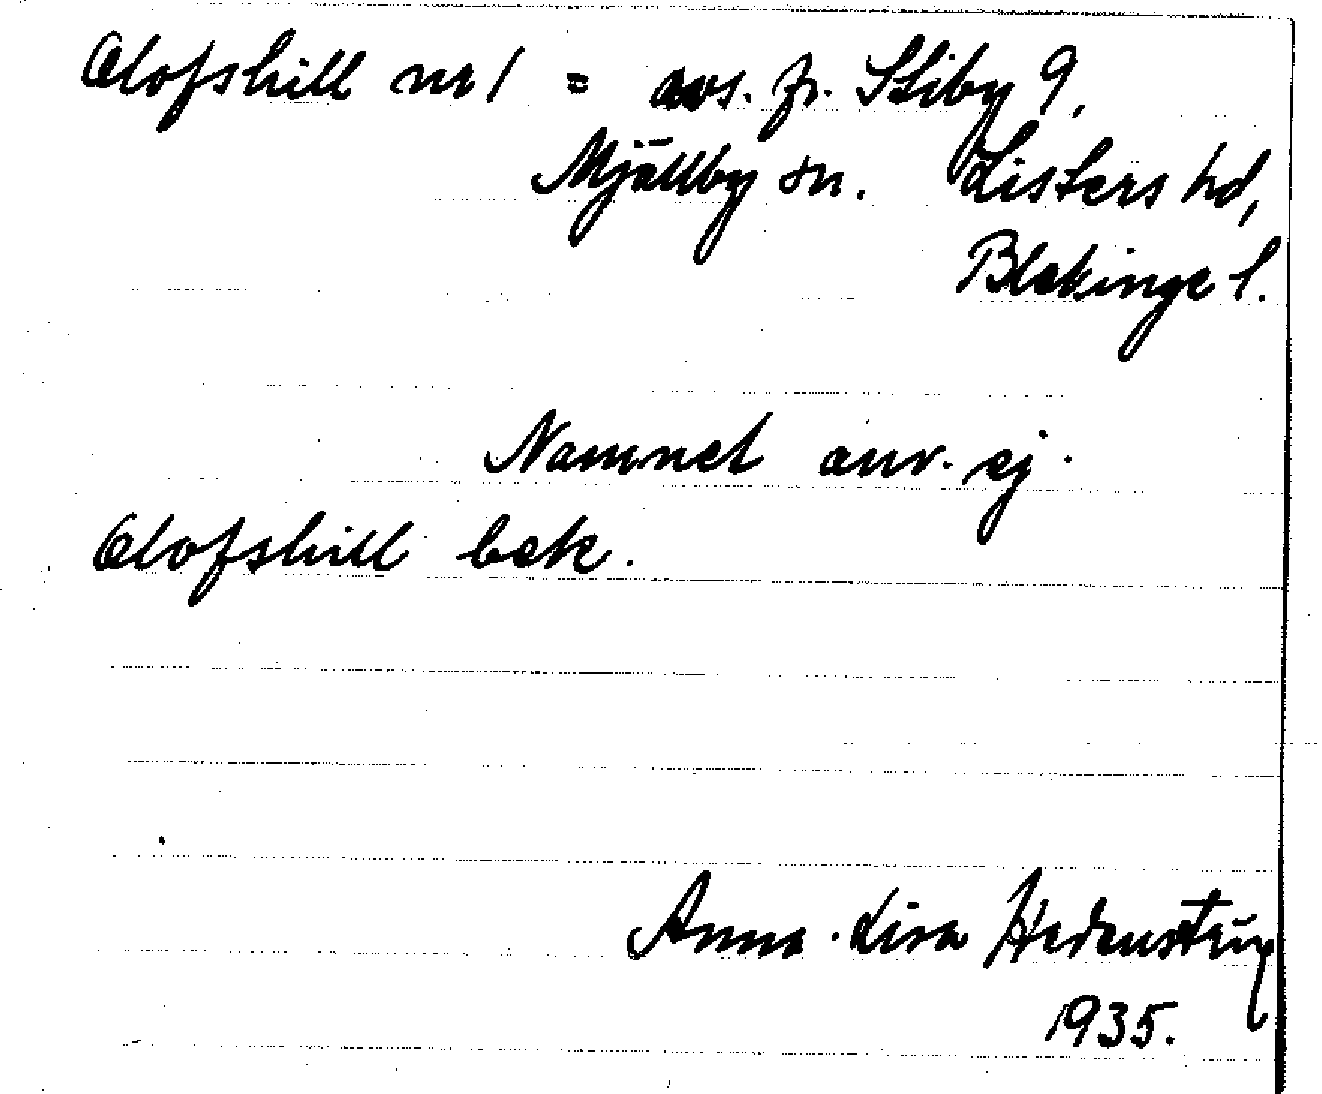 Olofshill nr 1 = avs. fr. Stiby 9,
Mjällby sn. Listers hd,
Blekinge l.
Namnet anv. ej.
Olofshill bek.
Anna-Lisa
1935.